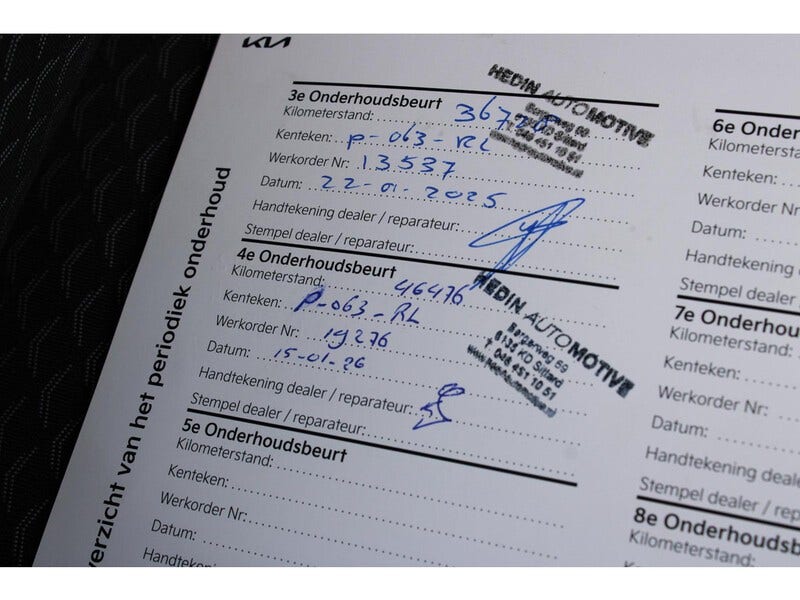 KIA
verzicht van het periodiek onderhoud
3e Onderhoudsbeurt
Kilometerstand: 36728
Kenteken: P-063-RL
Werkorder Nr: 13537
Datum: 22-01-2025
Handtekening dealer / reparateur:
Stempel dealer / reparateur:
HEDIN AUTOMOTIVE
Bergerweg 59
Sittard
T. 046 451 10 51
4e Onderhoudsbeurt
Kilometerstand: 46476
Kenteken: P-063-RL
Werkorder Nr: 19276
Datum: 15-01-26
Handtekening dealer / reparateur:
Stempel dealer / reparateur:
HEDIN AUTOMOTIVE
Bergerweg 59
6135 KD Sittard
T. 046 451 10 51
www.hedinautomotive.nl
5e Onderhoudsbeurt
Kilometerstand:
Kenteken:
Werkorder Nr:
Datum:
Handtekening
6e Onder
Kilometersta
Kenteken:
Werkorder Nr
Datum:
Handtekening
Stempel dealer
7e Onderhou
Kilometerstand:
Kenteken:
Werkorder Nr:
Datum:
Handtekening deale
Stempel dealer / re
8e Onderhoudsb
Kilometerstand:
Kenteken: